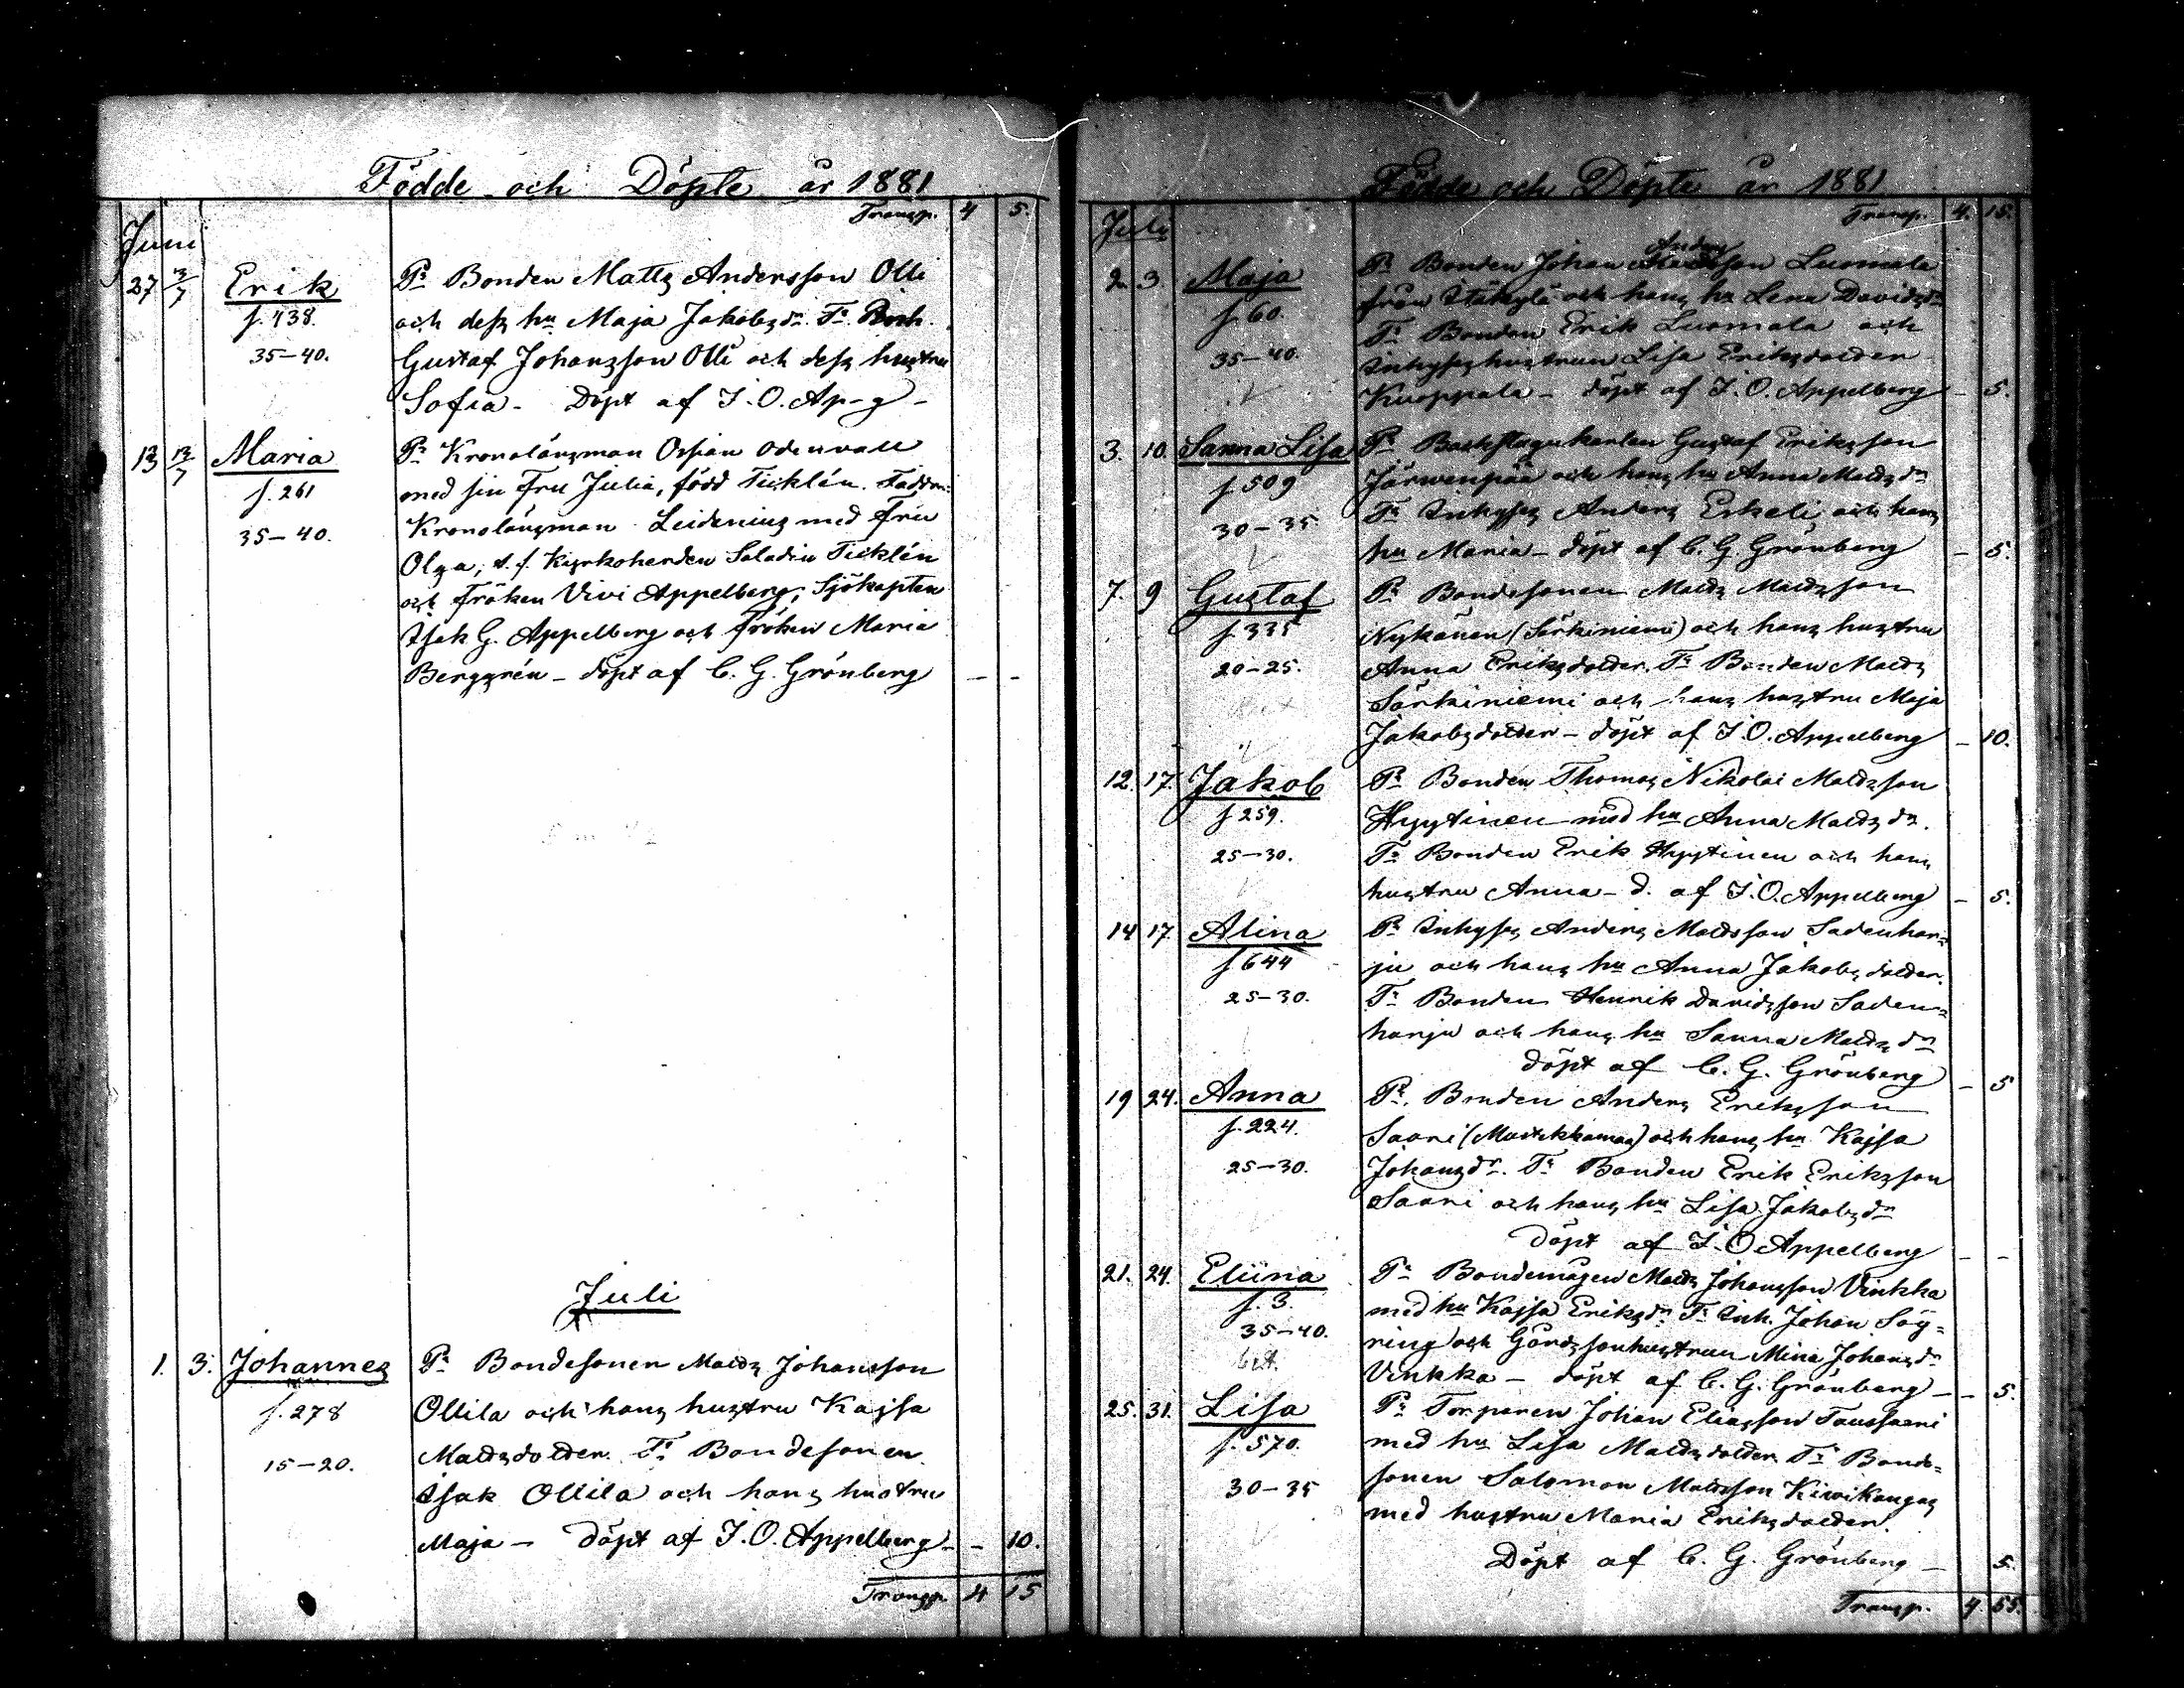 Födde och Döpte år 1881
Transp. 4 5.
Juni
27 3/7 Erik Pr Bonden Matts Andersson Olli
f. 438. och dess hu Maja Jakobsdr. Fr. Bosk.
35-40. Gustaf Johansson Olli och dess hustru
Sofia - Döpt af J. O. Ap-g -
13 13/7 Maria Pr Kronolänsman Ossian Odenvall
f. 261 med sin Fru Julia, född Ticklén. Faddr:
35-40. Kronolänsman Leidenius med Fru
Olga, t. f. Kyrkoherden Saladin Ticklén
och Fröken Vivi Appelberg, Sjökapten
Isak G. Appelberg och Fröken Maria
Berggrén - döpt af C. G. Grönberg - -
Juli
1. 3. Johannes Pr Bondesonen Matts Johansson
f. 278 Ollila och hans hustru Kajsa
15-20. Mattsdotter. Fr Bondesonen
Isak Ollila och hans hustru
Maja - Döpt af J. O. Appelberg - - 10.
Transp. 4 15
Födde och Döpte år 1881
Transp. 4. 15.
Juli
Anders
2. 3. Maja Pr Bonden Johan son Luomala
f. 60. från Itäkylä och hans hu Lena Davidsdr
35-40. Fr Bonden Erik Luomala och
Inhyseshustrun Lisa Eriksdotter
Kuoppala - döpt af J. O. Appelberg - 5.
3. 10. Sanna Lisa Pr Backstugukarlen Gustaf Eriksson
f. 509 Järwenpää och hans hu Anna Mattsdr
30-35 Fr Inhyses Anders Erkeli och hans
hu Maria - döpt af C. G. Grönberg - 5.
7. 9 Gustaf Pr Bondesonen Matts Mattsson
f. 335 Nykänen (Särkiniemi) och hans hustru
20-25. Anna Eriksdotter. Fr Bonden Matts
Särkiniemi och hans hustru Maja
Jakobsdotter - döpt af J. O. Appelberg - 10.
12. 17. Jakob Pr Bonden Thomas Nikolai Mattsson
f 259. Hyytinen med hu Anna Mattsdr.
25-30. Fr Bonden Erik Hyytinen och hans
hustru Anna - d. af J. O. Appelberg - 5.
14 17 Alina Pr Inhyses Anders Mattsson Sadenhar=
f 644 ju och hans hu Anna Jakobsdotter.
25-30. Fr Bonden Henrik Davidsson Saden=
harju och hans hu Sanna Mattsdr
döpt af C. G. Grönberg - 5
19 24. Anna Pr. Bonden Anders Eriksson
f. 224. Saari (Mustikkamaa) och hans hu Kajsa
25-30. Johansdr. Fr Bonden Erik Eriksson
Saari och hans hu Lisa Jakobsdr
Döpt af J. O Appelberg - -
21. 24. Eliina Pr Bondemågen Matts Johansson Vinkka
f. 3. med hu Kajsa Eriksdr Fr Inh. Johan Söy=
35-40. ring och Gårdssonhustrun Mina Johansdr
bet. Vinkka - döpt af C. G. Grönberg - - 5.
25. 31. Lisa Pr Torparen Johan Eliasson Taussaari
f. 570. med hu Lisa Mattsdotter Fr Bonde=
30-35 sonen Salomon Mattsson Kiwikangas
med hustru Maria Eriksdotter.
Döpt af C. G. Grönberg - 5.
Transp. 4. 55.